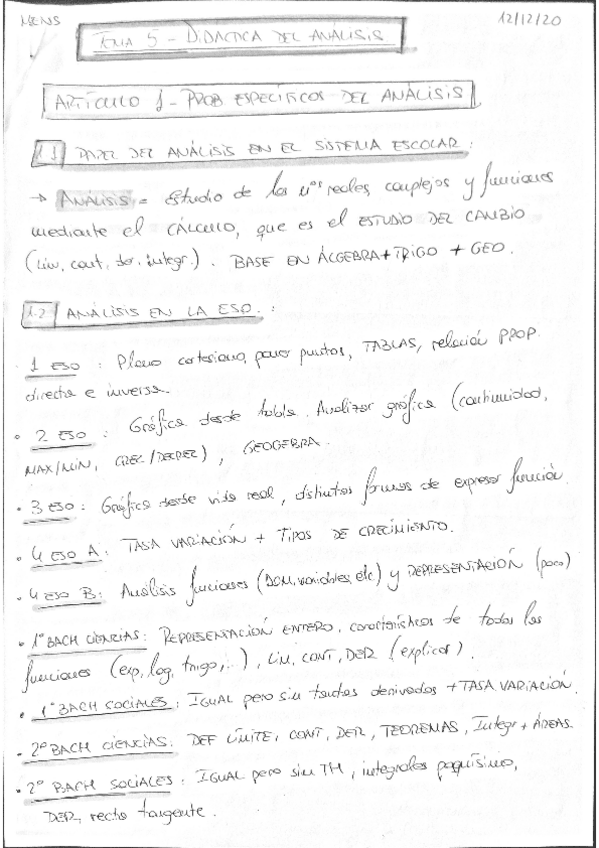 MENS
12/12/20
TEMA 5 - DIDÁCTICA DEL ANÁLISIS
ARTÍCULO 1 - PROB ESPECÍFICOS DEL ANÁLISIS
1.1 PAPEL DEL ANÁLISIS EN EL SISTEMA ESCOLAR:
→ ANÁLISIS = Estudio de los nºs reales, complejos y funciones
mediante el CÁLCULO, que es el ESTUDIO DEL CAMBIO
(Lim, cont, der, integr.). BASE EN ÁLGEBRA + TRIGO + GEO.
1.2 ANÁLISIS EN LA ESO.:
· 1 ESO: Plano cartesiano, poner puntos, TABLAS, relación PROP.
directa e inversa.
· 2 ESO: Gráfica desde tabla. Analizar gráfica (continuidad,
MAX/MIN, CREC/DECREC), GEOGEBRA.
· 3 ESO: Gráfica desde vida real, distintas formas de expresar función.
· 4 ESO A: TASA VARIACIÓN + TIPOS DE CRECIMIENTO.
· 4 ESO B: Análisis funciones (DOM, variables, etc) y REPRESENTACIÓN (poco)
· 1º BACH CIENCIAS: REPRESENTACIÓN ENTERO, características de todas las
funciones (exp, log, trigo,...), LIM, CONT, DER (explicar).
· 1º BACH SOCIALES: IGUAL pero sin tantas derivadas + TASA VARIACIÓN.
· 2º BACH CIENCIAS: DEF LÍMITE, CONT, DER, TEOREMAS, Integr + ÁREAS.
· 2º BACH SOCIALES: IGUAL pero sin TH, integrales poquísimo,
DER, recta tangente.